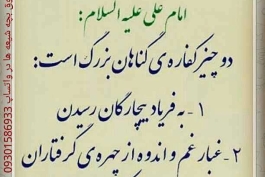 امام علی علیه السلام:
دو چیز کفاره ی گناهان بزرگ است:
۱- به فریاد بیچارگان رسیدن
۲- غبار غم و اندوه از چهره ی گرفتاران
بچه شیعه ها در واتساپ 09301586933